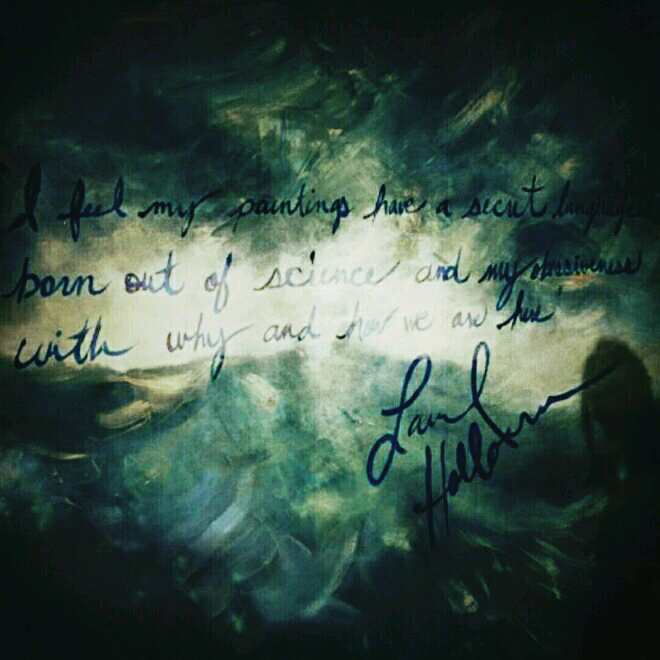 I feel my paintings have a secret language
born out of science and my obsessiveness
with why and how we are here
Laurel
Holloman